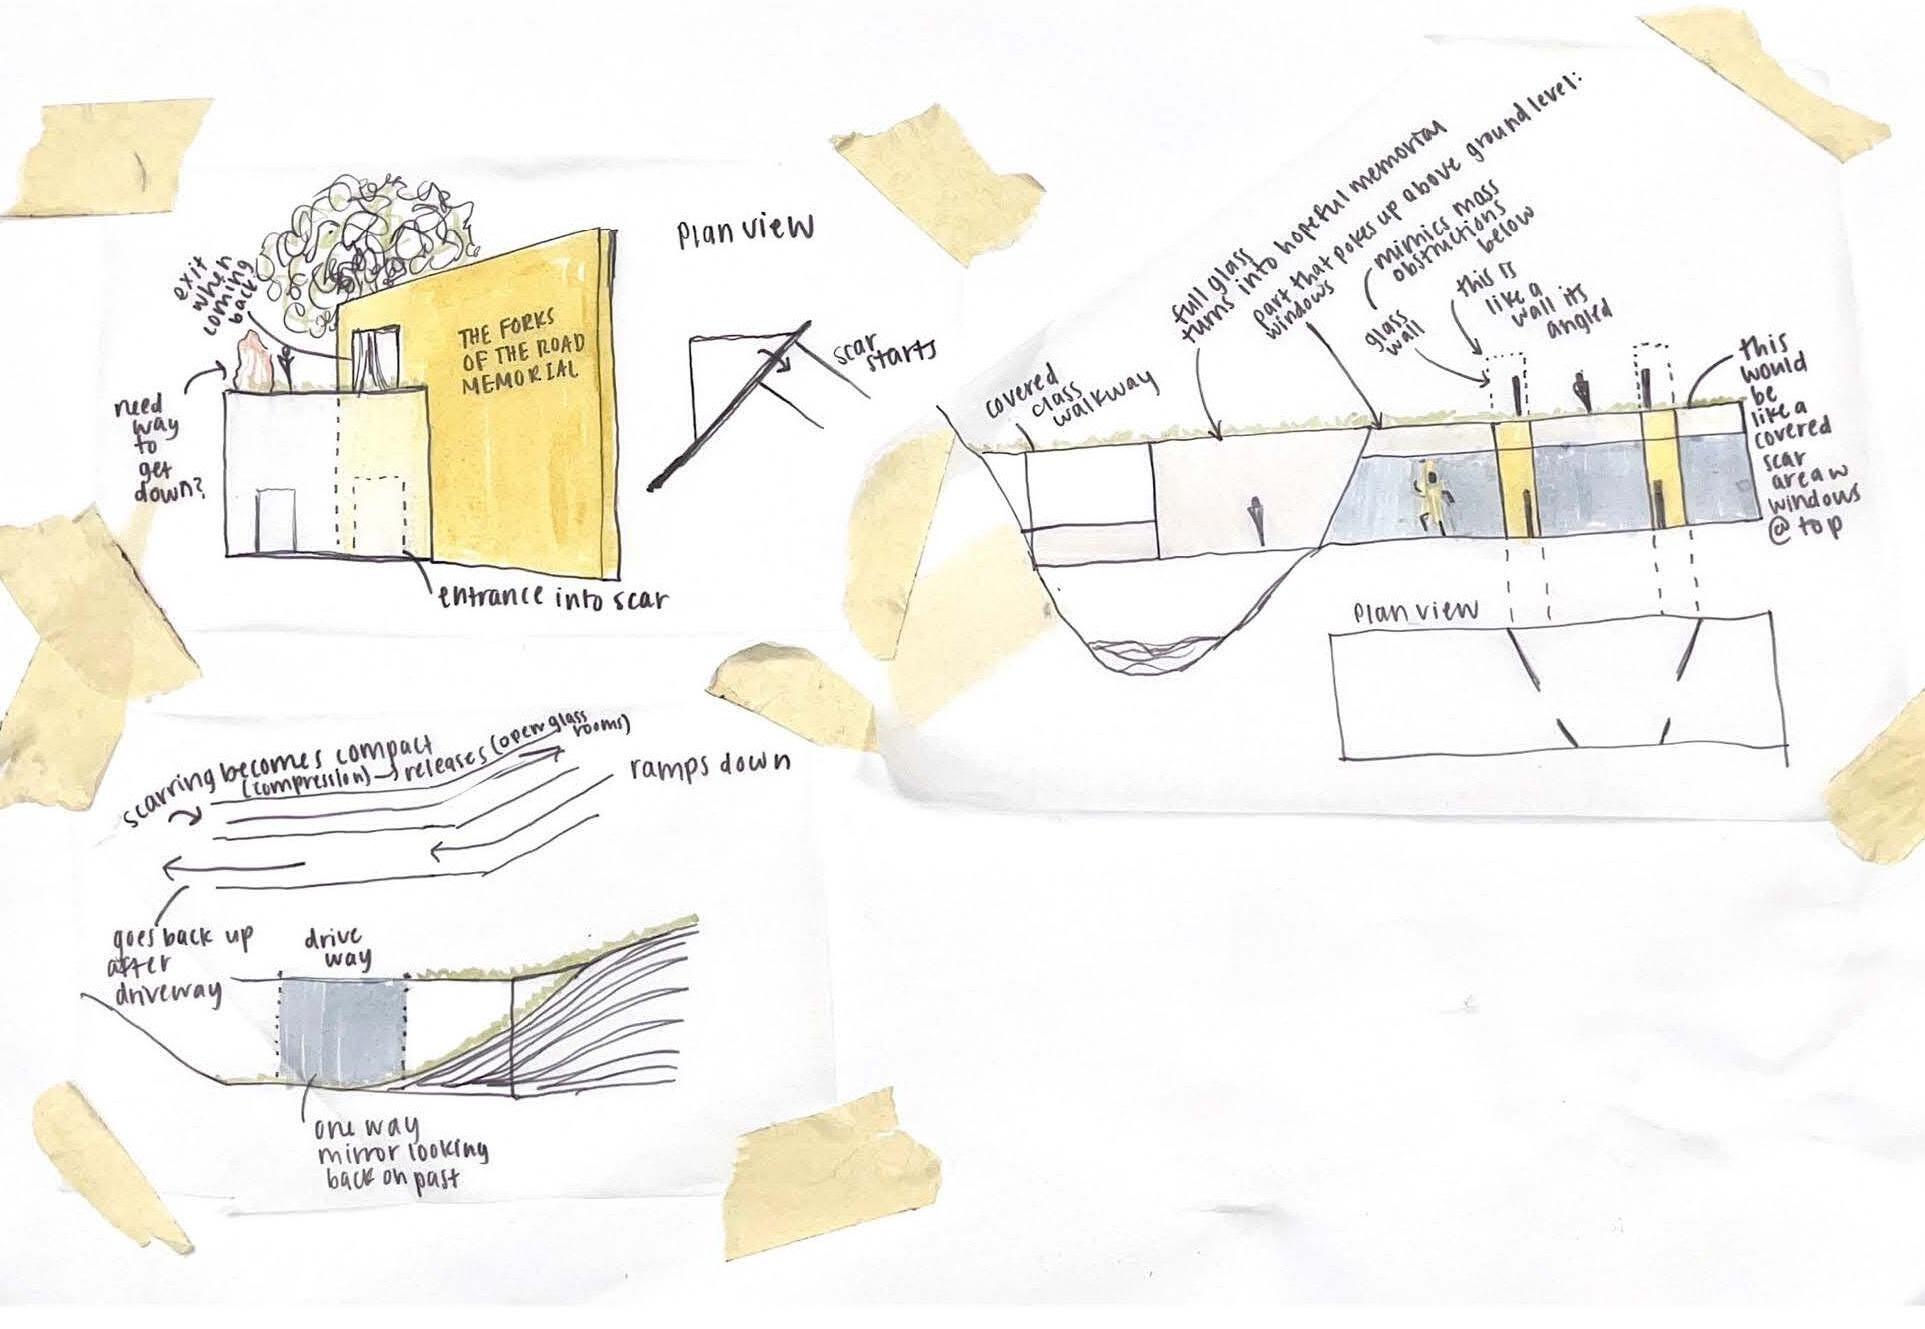 exit
when
coming
back
need
way
to
get
down?
THE FORKS
OF THE ROAD
MEMORIAL
entrance into scar
Plan view
scar
starts
covered
class
walkway
full glass
turns into hopeful memorial
part that pokes up above ground level:
windows
mimics mass
obstructions
below
glass
wall
this is
like a
wall its
angled
this
would
be
like a
covered
scar
area w
windows
@ top
Plan view
scarring becomes compact
(compression) → releases (open glass
rooms)
ramps down
goes back up
after
driveway
drive
way
one way
mirror looking
back on past